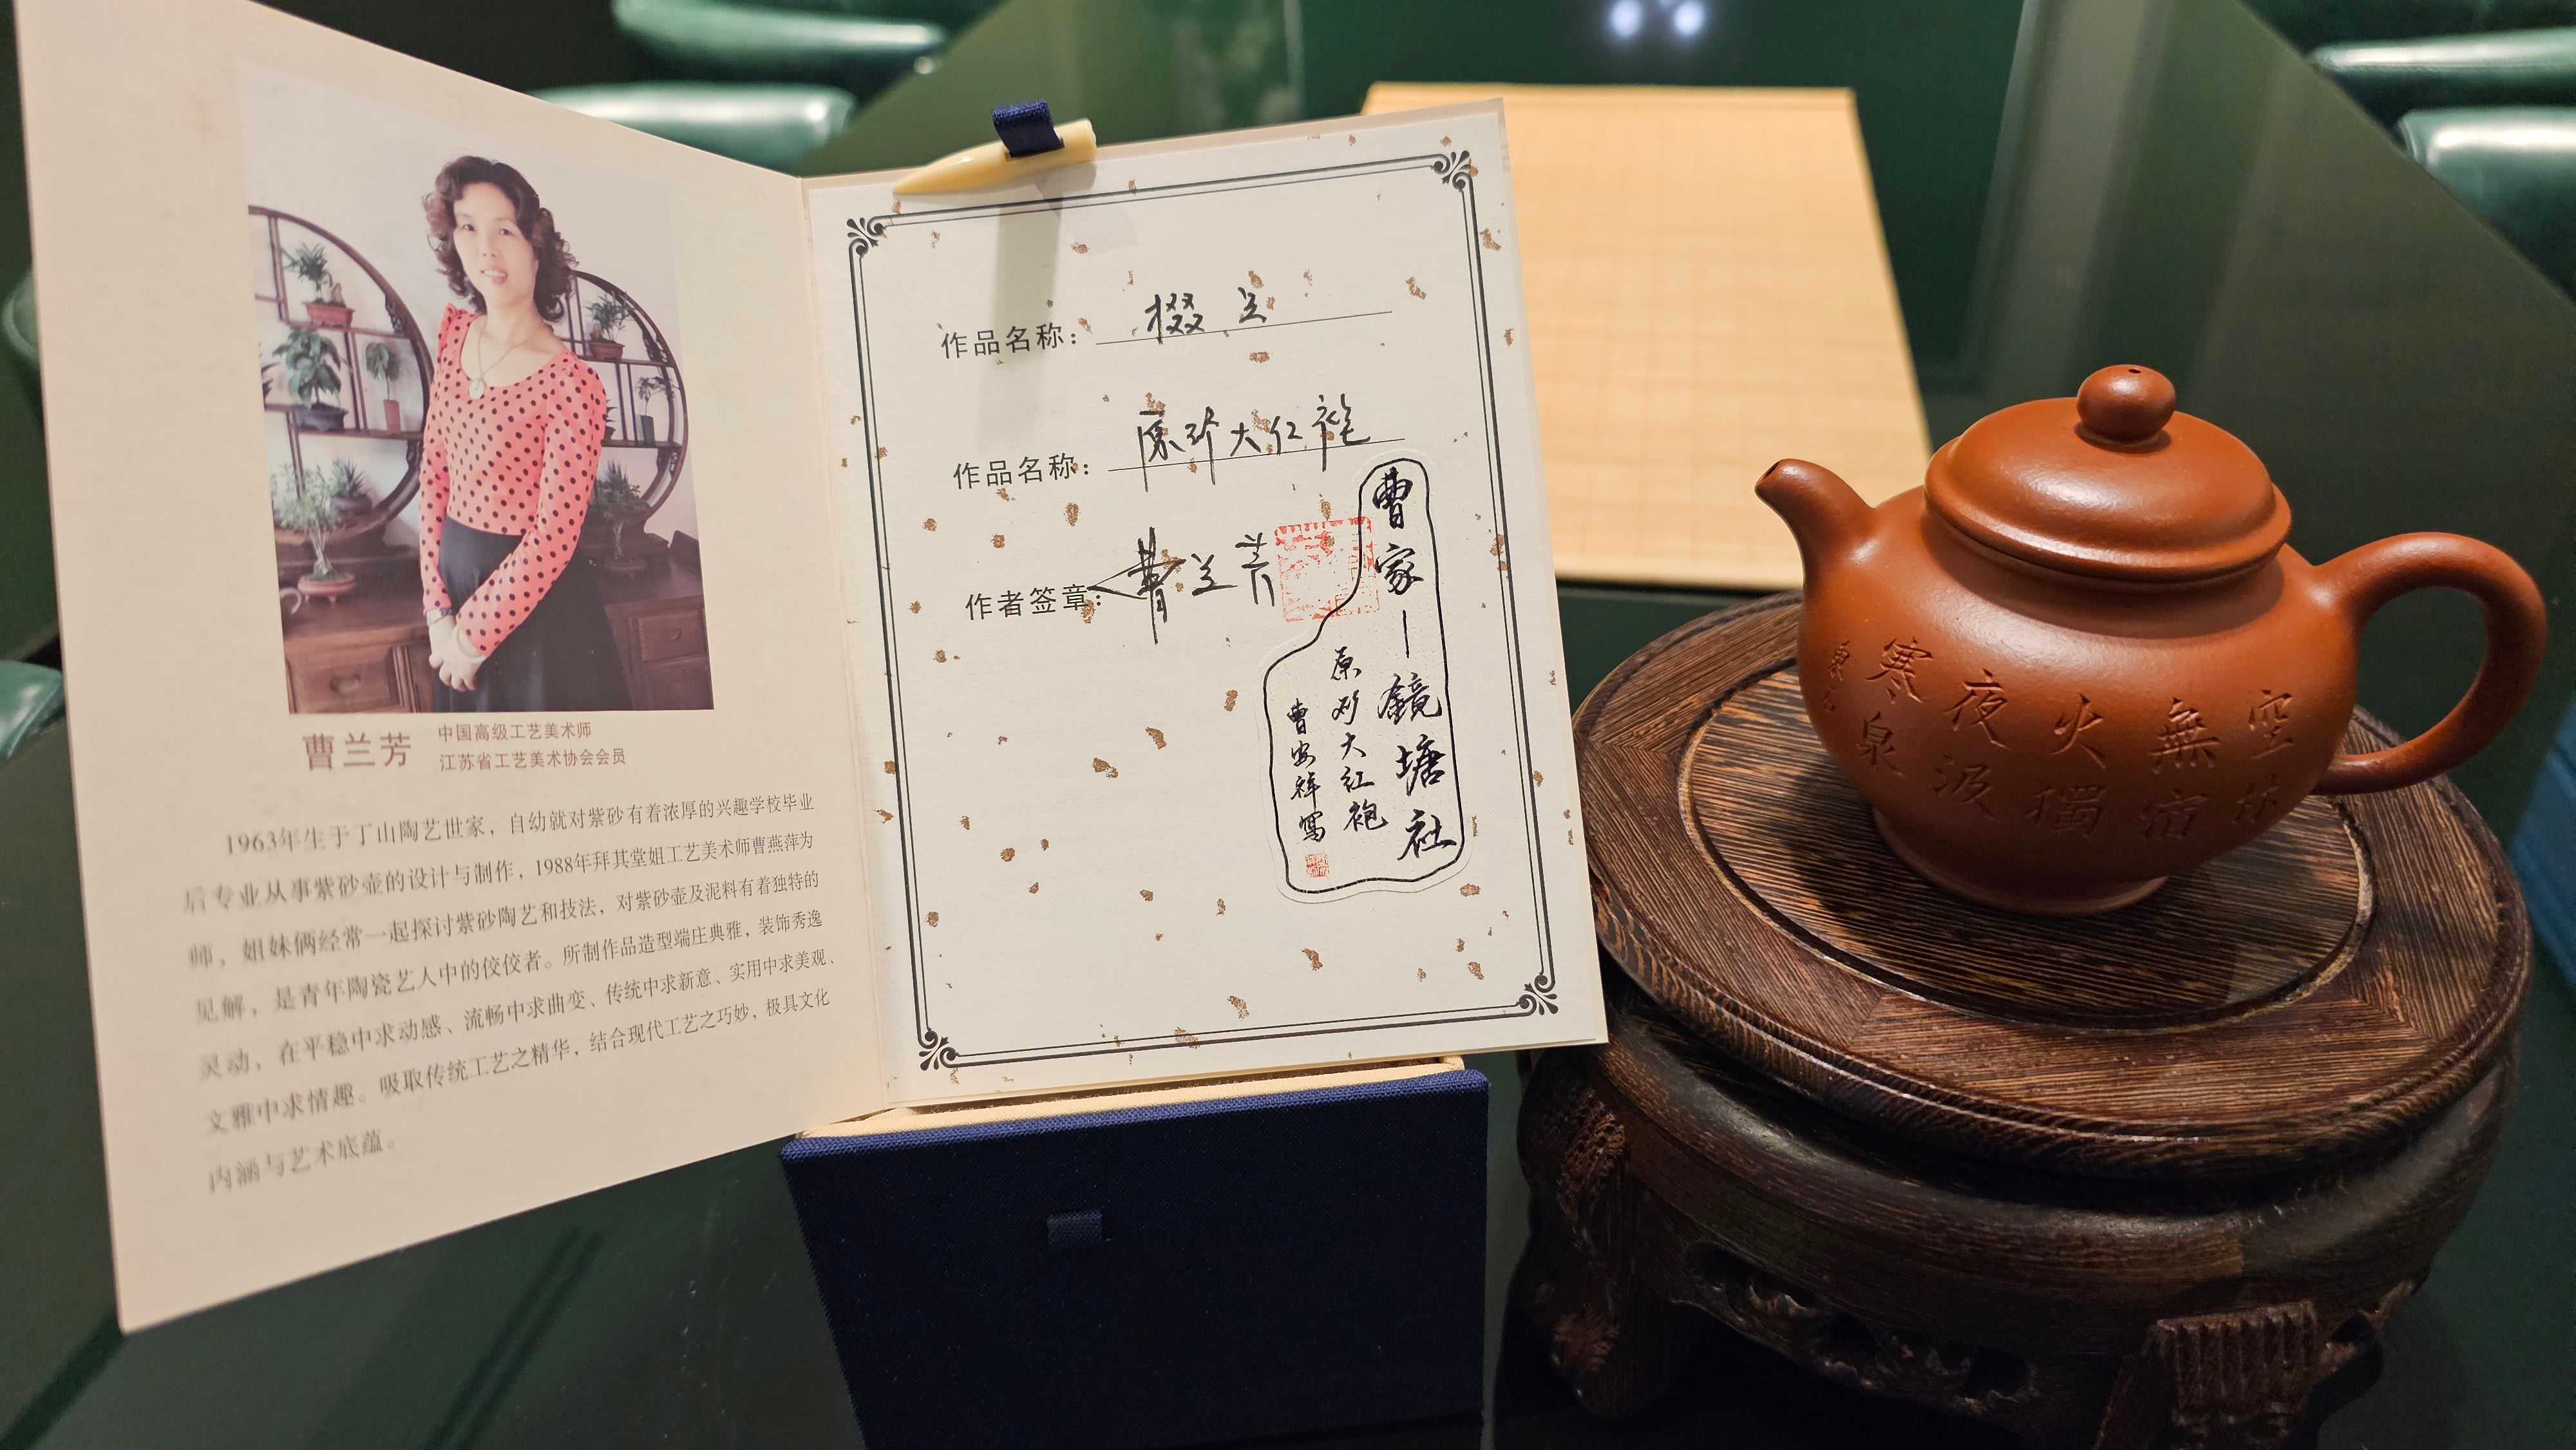 曹兰芳
中国高级工艺美术师
江苏省工艺美术协会会员
1963年生于丁山陶艺世家，自幼就对紫砂有着浓厚的兴趣学校毕业
后专业从事紫砂壶的设计与制作，1988年拜其堂姐工艺美术师曹燕萍为
师，姐妹俩经常一起探讨紫砂陶艺和技法，对紫砂壶及泥料有着独特的
见解，是青年陶瓷艺人中的佼佼者。所制作品造型端庄典雅，装饰秀逸
灵动，在平稳中求动感、流畅中求曲变、传统中求新意、实用中求美观、
文雅中求情趣。吸取传统工艺之精华，结合现代工艺之巧妙，极具文化
内涵与艺术底蕴。
作品名称：掇只
作品名称：原矿大红袍
作者签章：曹兰芳
曹家－鏡塘社
原矿大红袍
曹安祥寫
空林
無宿
火獨
夜汲
寒泉